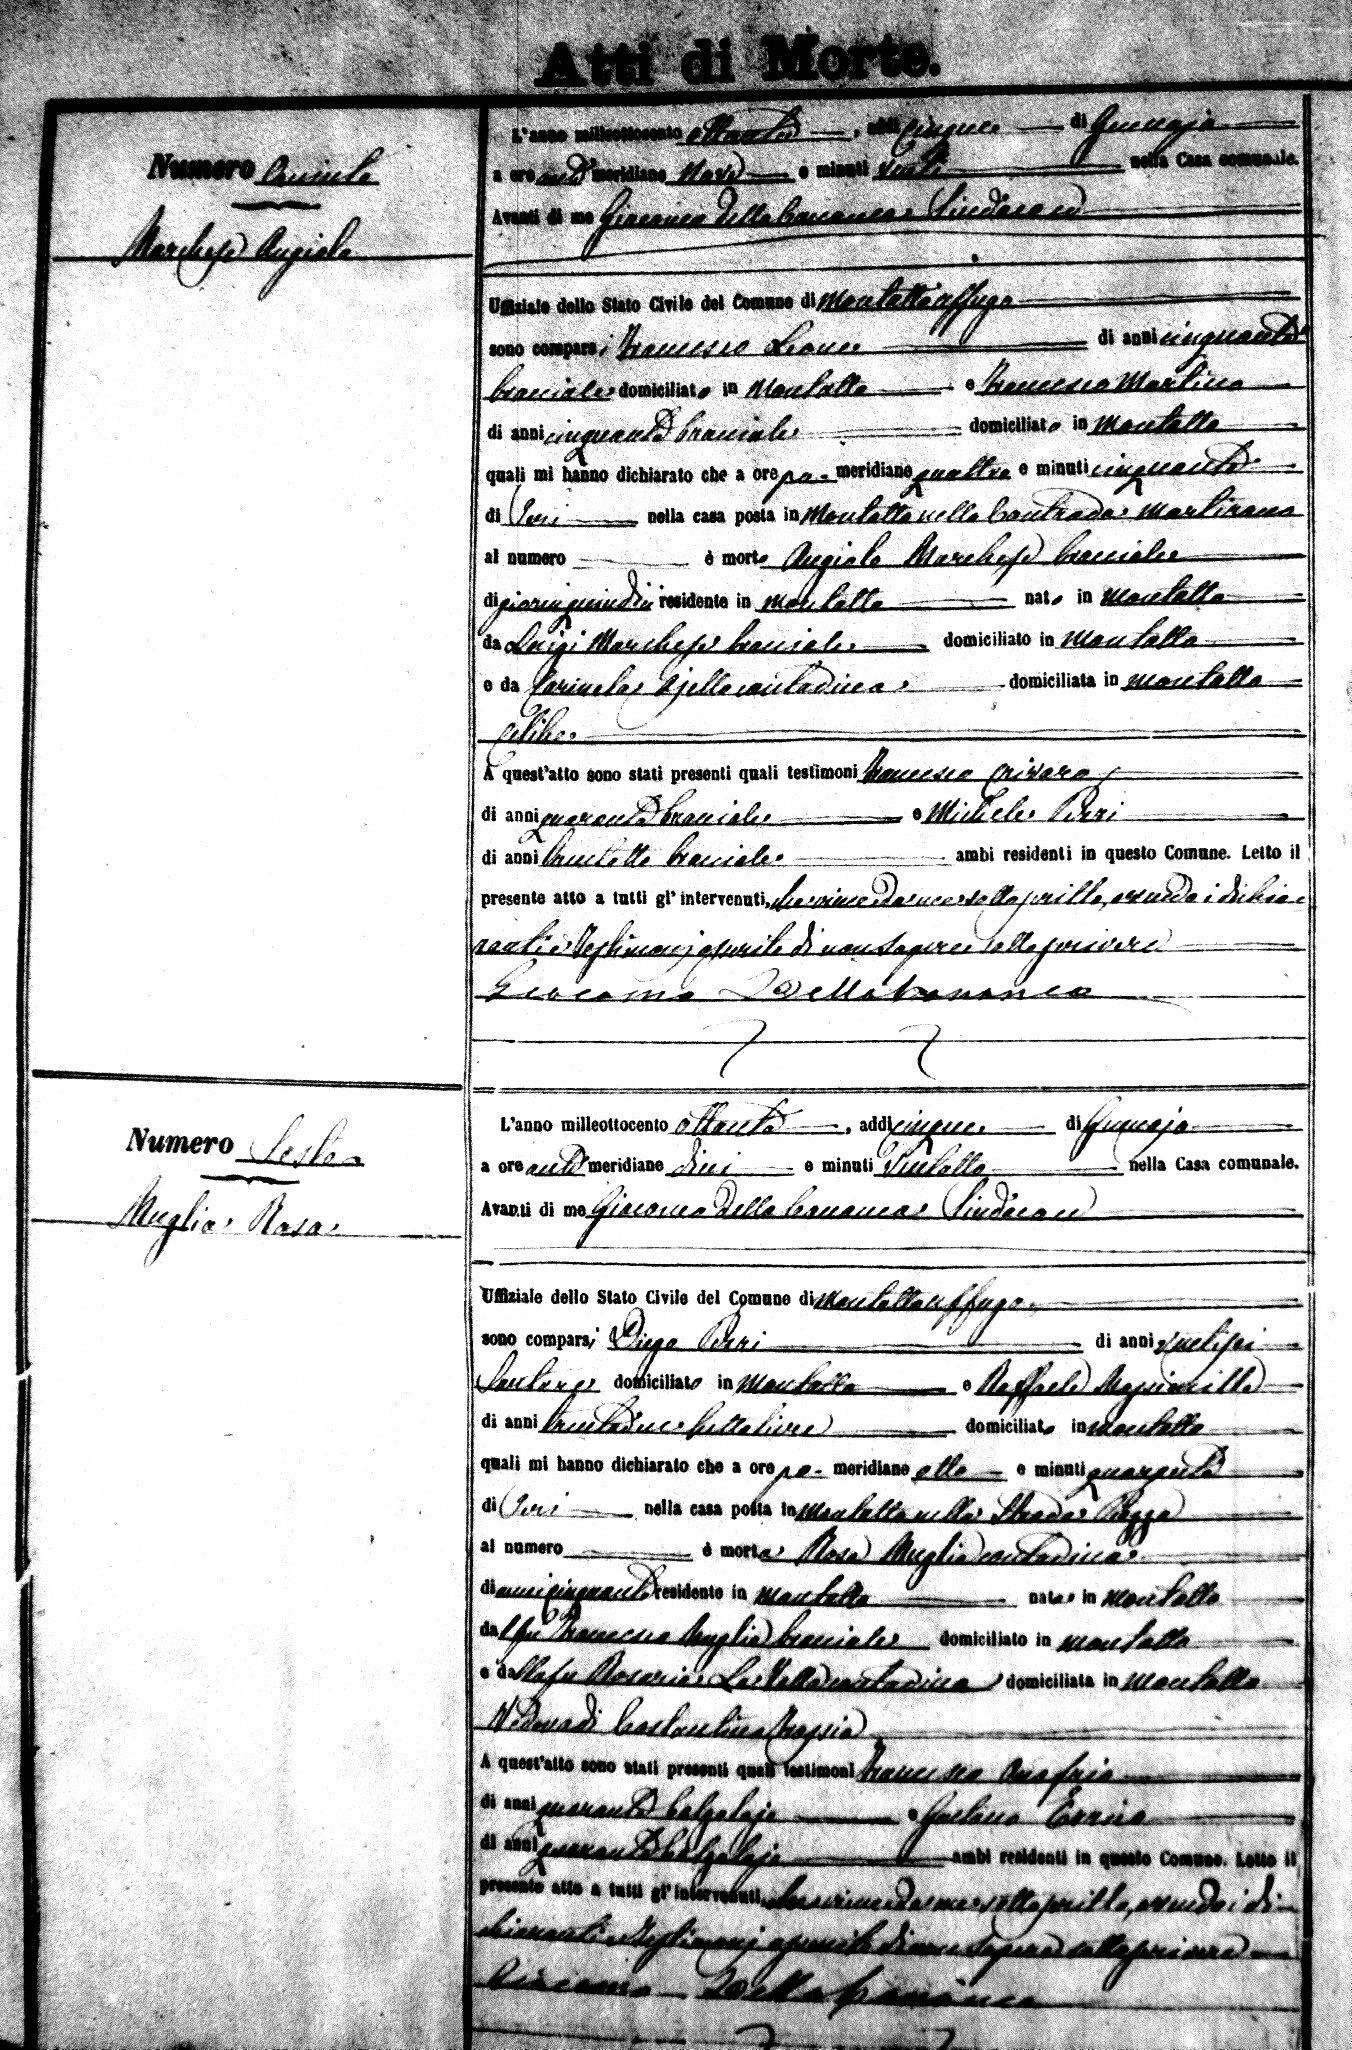 Atti di Morte.
Numero Quinto
Marchese Angiolo
L'anno milleottocento ottanta, addi cinque di Gennajo
a ore anti meridiane nove e minuti venti nella Casa comunale.
Avanti di me Giacomo Della Cananea Sindaco
Uffiziale dello Stato Civile del Comune di Montalto Uffugo
sono comparsi Francesco Leone di anni cinquanta
bracciale domiciliato in Montalto e Francesco Martino
di anni cinquanta bracciale domiciliato in Montalto
quali mi hanno dichiarato che a ore po- meridiane quattro e minuti cinquanta
di Jeri nella casa posta in Montalto nella Contrada Martirano
al numero è morto Angiolo Marchese bracciale
di giorni quindici residente in Montalto nato in Montalto
da Luigi Marchese bracciale domiciliato in Montalto
e da contadina domiciliata in Montalto
celibe
A quest'atto sono stati presenti quali testimoni Francesco
di anni quaranta bracciale e Michele Perri
di anni trentotto bracciale ambi residenti in questo Comune. Letto il
presente atto a tutti gl'intervenuti, si è da me sottoscritto, avendo i dichia-
ranti e testimonj asserito di non sapere sottoscrivere
Giacomo Della Cananea
Numero Sesto
Muglia Rosa
L'anno milleottocento ottanta, addi cinque di Gennajo
a ore anti meridiane dieci e minuti ventotto nella Casa comunale.
Avanti di me Giacomo Della Cananea Sindaco
Uffiziale dello Stato Civile del Comune di Montalto Uffugo
sono comparsi Diego Perri di anni ventisei
domiciliato in Montalto e Raffaele
di anni trentadue domiciliato in Montalto
quali mi hanno dichiarato che a ore po- meridiane otto e minuti quaranta
di Jeri nella casa posta in Montalto nella Strada Piazza
al numero è morta Rosa Muglia contadina
di anni cinquanta residente in Montalto nata in Montalto
dal fu Francesco Muglia bracciale domiciliato in Montalto
e dalla fu Rosaria La Valle contadina domiciliata in Montalto
Vedova di Costantino
A quest'atto sono stati presenti quali testimoni Francesco Onofrio
di anni quaranta calzolajo e Gaetano Errico
di anni quaranta calzolajo ambi residenti in questo Comune. Letto il
presente atto a tutti gl'intervenuti, si è da me sottoscritto, avendo i di-
chiaranti e testimonj asserito di non sapere sottoscrivere
Giacomo Della Cananea